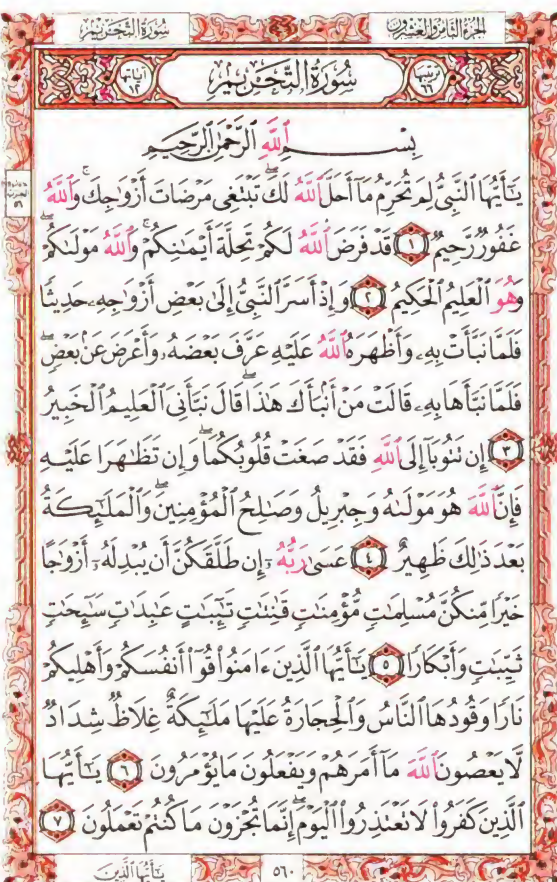 الجزء الثامن والعشرون
سُورَةُ التَّحْرِيمِ
ترتيبها ٦٦
سُورَةُ التَّحْرِيمِ
آياتها ١٢
بِسْمِ اللَّهِ الرَّحْمَٰنِ الرَّحِيمِ
يَٰٓأَيُّهَا ٱلنَّبِيُّ لِمَ تُحَرِّمُ مَآ أَحَلَّ ٱللَّهُ لَكَۖ تَبْتَغِى مَرْضَاتَ أَزْوَٰجِكَۚ وَٱللَّهُ
غَفُورٌ رَّحِيمٌ ١ قَدْ فَرَضَ ٱللَّهُ لَكُمْ تَحِلَّةَ أَيْمَٰنِكُمْۚ وَٱللَّهُ مَوْلَىٰكُمْۖ
وَهُوَ ٱلْعَلِيمُ ٱلْحَكِيمُ ٢ وَإِذْ أَسَرَّ ٱلنَّبِيُّ إِلَىٰ بَعْضِ أَزْوَٰجِهِۦ حَدِيثًا
فَلَمَّا نَبَّأَتْ بِهِۦ وَأَظْهَرَهُ ٱللَّهُ عَلَيْهِ عَرَّفَ بَعْضَهُۥ وَأَعْرَضَ عَنۢ بَعْضٍۖ
فَلَمَّا نَبَّأَهَا بِهِۦ قَالَتْ مَنْ أَنۢبَأَكَ هَٰذَاۖ قَالَ نَبَّأَنِىَ ٱلْعَلِيمُ ٱلْخَبِيرُ
٣ إِن تَتُوبَآ إِلَى ٱللَّهِ فَقَدْ صَغَتْ قُلُوبُكُمَاۖ وَإِن تَظَٰهَرَا عَلَيْهِ
فَإِنَّ ٱللَّهَ هُوَ مَوْلَىٰهُ وَجِبْرِيلُ وَصَٰلِحُ ٱلْمُؤْمِنِينَۖ وَٱلْمَلَٰٓئِكَةُ
بَعْدَ ذَٰلِكَ ظَهِيرٌ ٤ عَسَىٰ رَبُّهُۥٓ إِن طَلَّقَكُنَّ أَن يُبْدِلَهُۥٓ أَزْوَٰجًا
خَيْرًا مِّنكُنَّ مُسْلِمَٰتٍ مُّؤْمِنَٰتٍ قَٰنِتَٰتٍ تَٰٓئِبَٰتٍ عَٰبِدَٰتٍ سَٰٓئِحَٰتٍ
ثَيِّبَٰتٍ وَأَبْكَارًا ٥ يَٰٓأَيُّهَا ٱلَّذِينَ ءَامَنُوا۟ قُوٓا۟ أَنفُسَكُمْ وَأَهْلِيكُمْ
نَارًا وَقُودُهَا ٱلنَّاسُ وَٱلْحِجَارَةُ عَلَيْهَا مَلَٰٓئِكَةٌ غِلَاظٌ شِدَادٌ
لَّا يَعْصُونَ ٱللَّهَ مَآ أَمَرَهُمْ وَيَفْعَلُونَ مَا يُؤْمَرُونَ ٦ يَٰٓأَيُّهَا
ٱلَّذِينَ كَفَرُوا۟ لَا تَعْتَذِرُوا۟ ٱلْيَوْمَۖ إِنَّمَا تُجْزَوْنَ مَا كُنتُمْ تَعْمَلُونَ ٧
٥٦٠
يَٰٓأَيُّهَا ٱلَّذِينَ